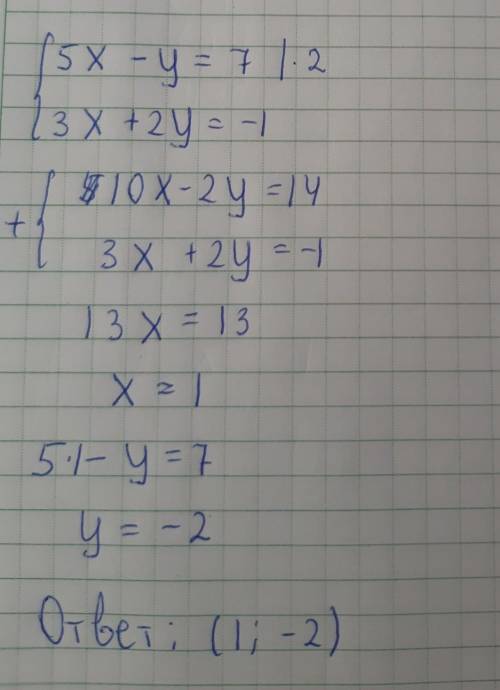 5x - y = 7 | · 2
3x + 2y = -1
+ 10x - 2y = 14
3x + 2y = -1
13x = 13
x = 1
5·1 - y = 7
y = -2
Ответ: (1; -2)